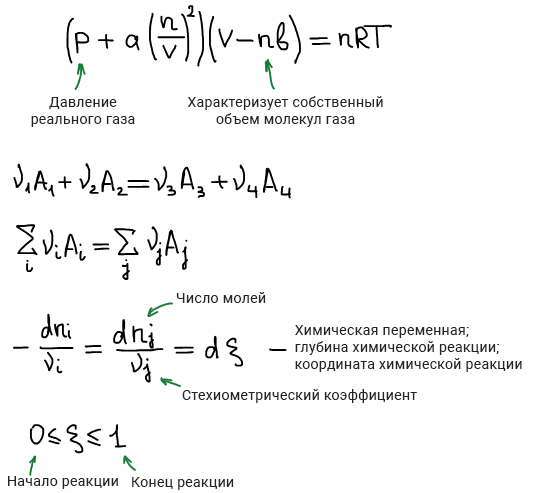 (P + a (n/V)²)(V − nв) = nRT
Давление
реального газа
Характеризует собственный
объем молекул газа
ν₁A₁ + ν₂A₂ = ν₃A₃ + ν₄A₄
∑ᵢ νᵢAᵢ = ∑ⱼ νⱼAⱼ
Число молей
− dnᵢ/νᵢ = dnⱼ/νⱼ = dξ —
Химическая переменная;
глубина химической реакции;
координата химической реакции
Стехиометрический коэффициент
0 ≤ ξ ≤ 1
Начало реакции
Конец реакции